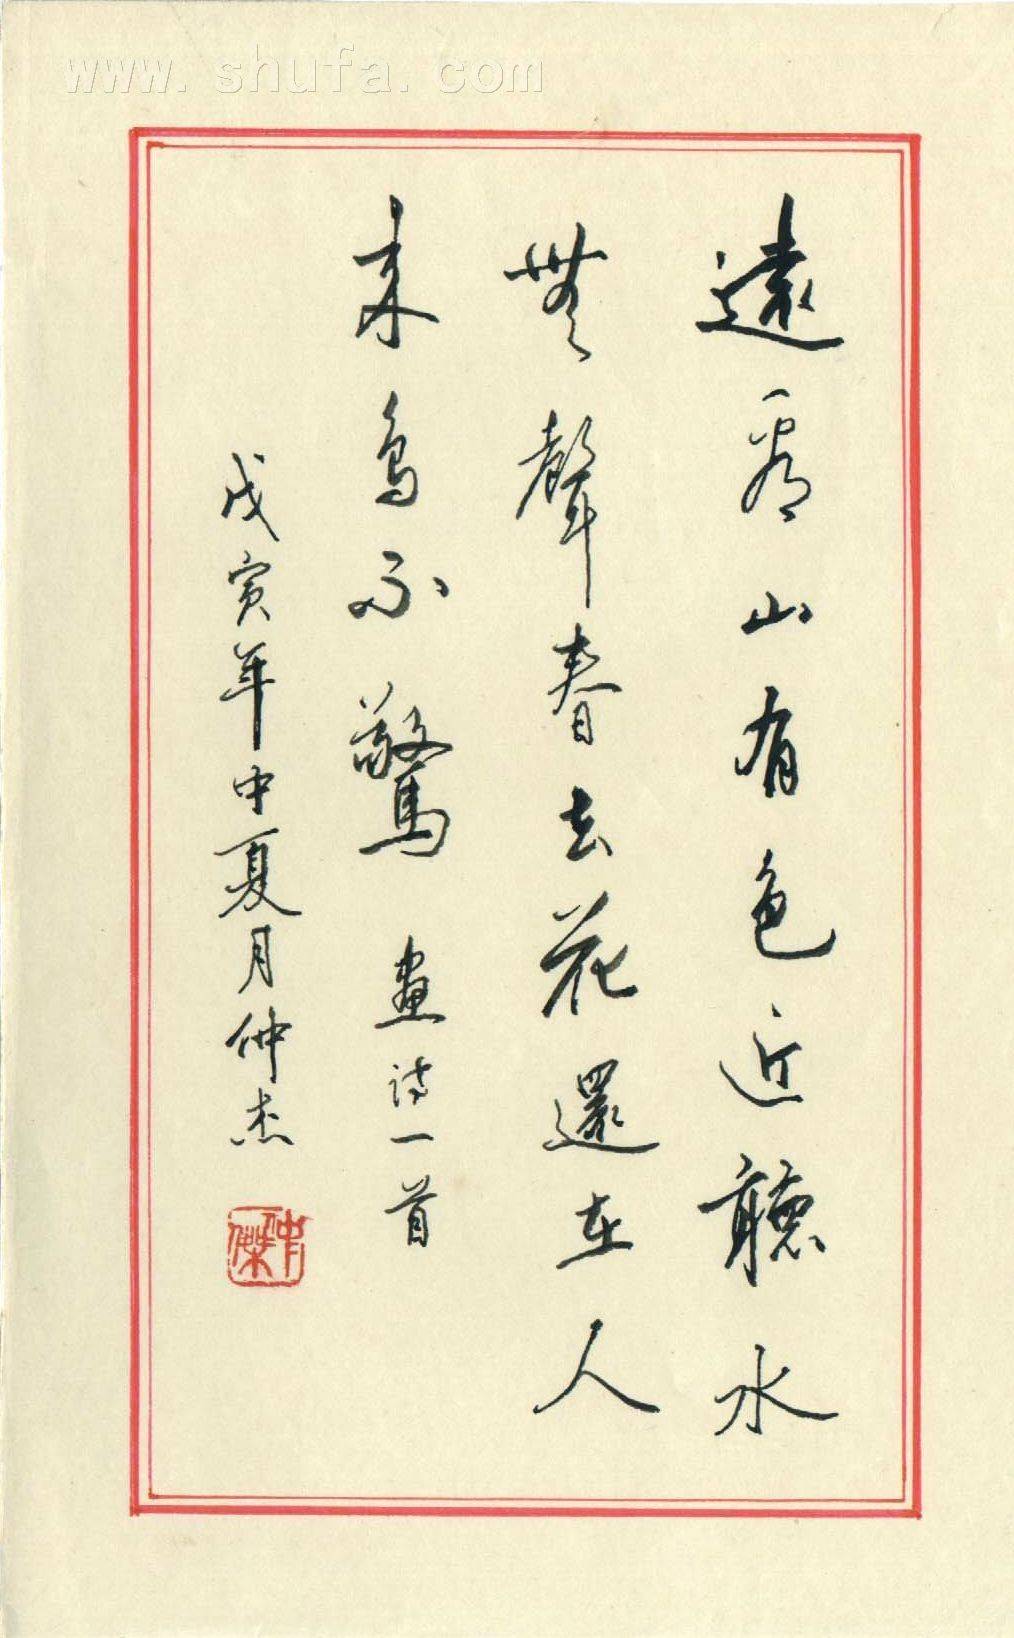 www.shufa.com
遠看山有色近聽水
無聲春去花還在人
来鳥不驚 畫诗一首
戊寅年中夏月仲杰
仲傑